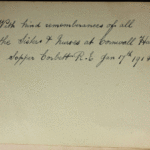 With kind remembrances of all
the Sisters & Nurses at Cornwall
Sapper Corbett R.E. Jan 17th